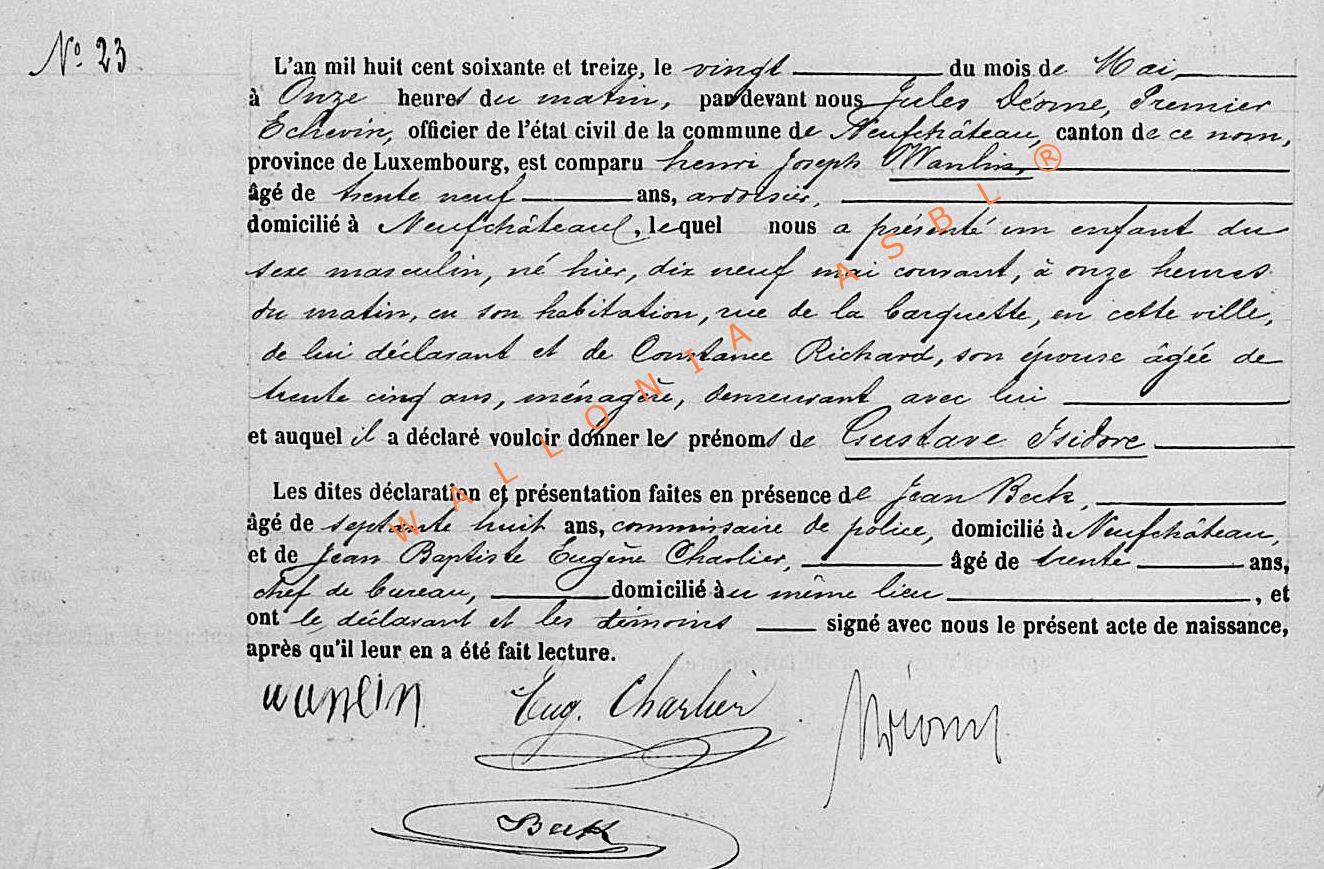 N° 23
L'an mil huit cent soixante et treize, le vingt du mois de Mai,
à Onze heures du matin, par devant nous Jules Déome, Premier
Echevin, officier de l'état civil de la commune de Neufchâteau, canton de ce nom,
province de Luxembourg, est comparu henri Joseph Wanlin,
âgé de trente neuf ans, ardoisier,
domicilié à Neufchâteau, lequel nous a présenté un enfant du
sexe masculin, né hier, dix neuf mai courant, à onze heures
du matin, en son habitation, rue de la barquette, en cette ville,
de lui déclarant et de Constance Richard, son épouse âgée de
trente cinq ans, ménagère, demeurant avec lui
et auquel il a déclaré vouloir donner les prénoms de Gustave Isidore
Les dites déclaration et présentation faites en présence de Jean Beck,
âgé de septante huit ans, commissaire de police, domicilié à Neufchâteau,
et de Jean Baptiste Eugène Charlier, âgé de trente ans,
chef de bureau, domicilié au même lieu, et
ont le déclarant et les témoins signé avec nous le présent acte de naissance,
après qu'il leur en a été fait lecture.
wanlin Eug. Charlier Déome
Beck
WALLONIA ASBL ®